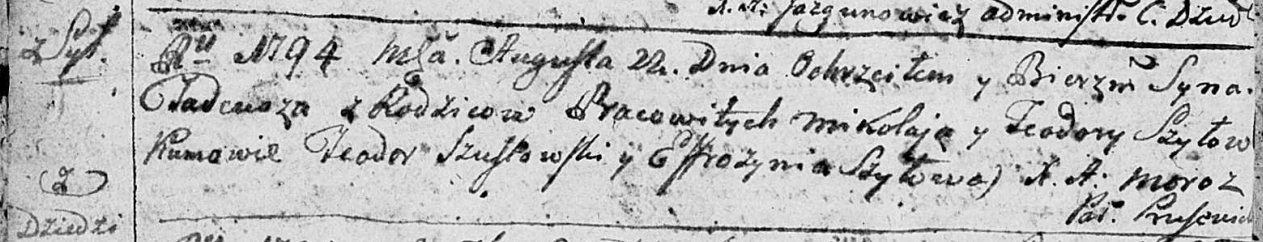 X. A: Jazgunowicz administr. C. Dziedz
z Syt.
Ru 1794 Mca. Augusta 22. Dnia Ochrzciłem y Bierzm Syna.
Tadeusza z Rodzicow Pracowitych Mikołaja y Teodory Szyłow
Kumowie Teodor Szusłowski y Effrozynia Szyłowa) X. A: Moroz
Par. Prusewicz
Dziedzi